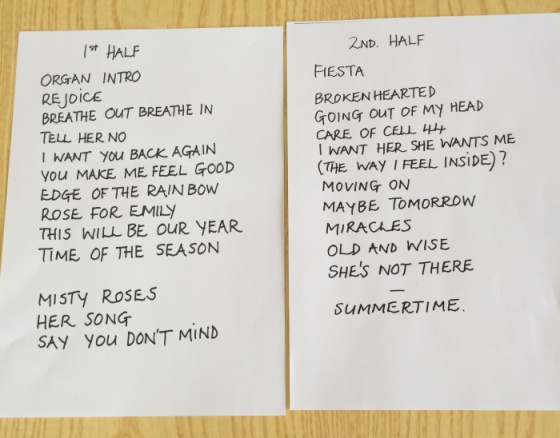 1st HALF
ORGAN INTRO
REJOICE
BREATHE OUT BREATHE IN
TELL HER NO
I WANT YOU BACK AGAIN
YOU MAKE ME FEEL GOOD
EDGE OF THE RAINBOW
ROSE FOR EMILY
THIS WILL BE OUR YEAR
TIME OF THE SEASON
MISTY ROSES
HER SONG
SAY YOU DON'T MIND
2ND. HALF
FIESTA
BROKENHEARTED
GOING OUT OF MY HEAD
CARE OF CELL 44
I WANT HER SHE WANTS ME
(THE WAY I FEEL INSIDE)?
MOVING ON
MAYBE TOMORROW
MIRACLES
OLD AND WISE
SHE'S NOT THERE
—
SUMMERTIME.